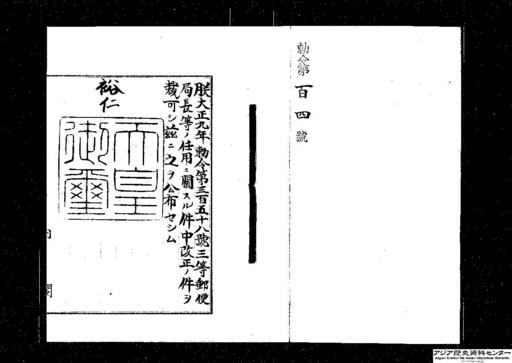 勅令第百四號
朕大正九年勅令第三百五十八號三等郵便
局長等ノ任用ニ關スル件中改正ノ件ヲ
裁可シ玆ニ之ヲ公布セシム
裕仁
天皇
御璽
内
閣
アジア歴史資料センター
Japan Center for Asian Historical Records